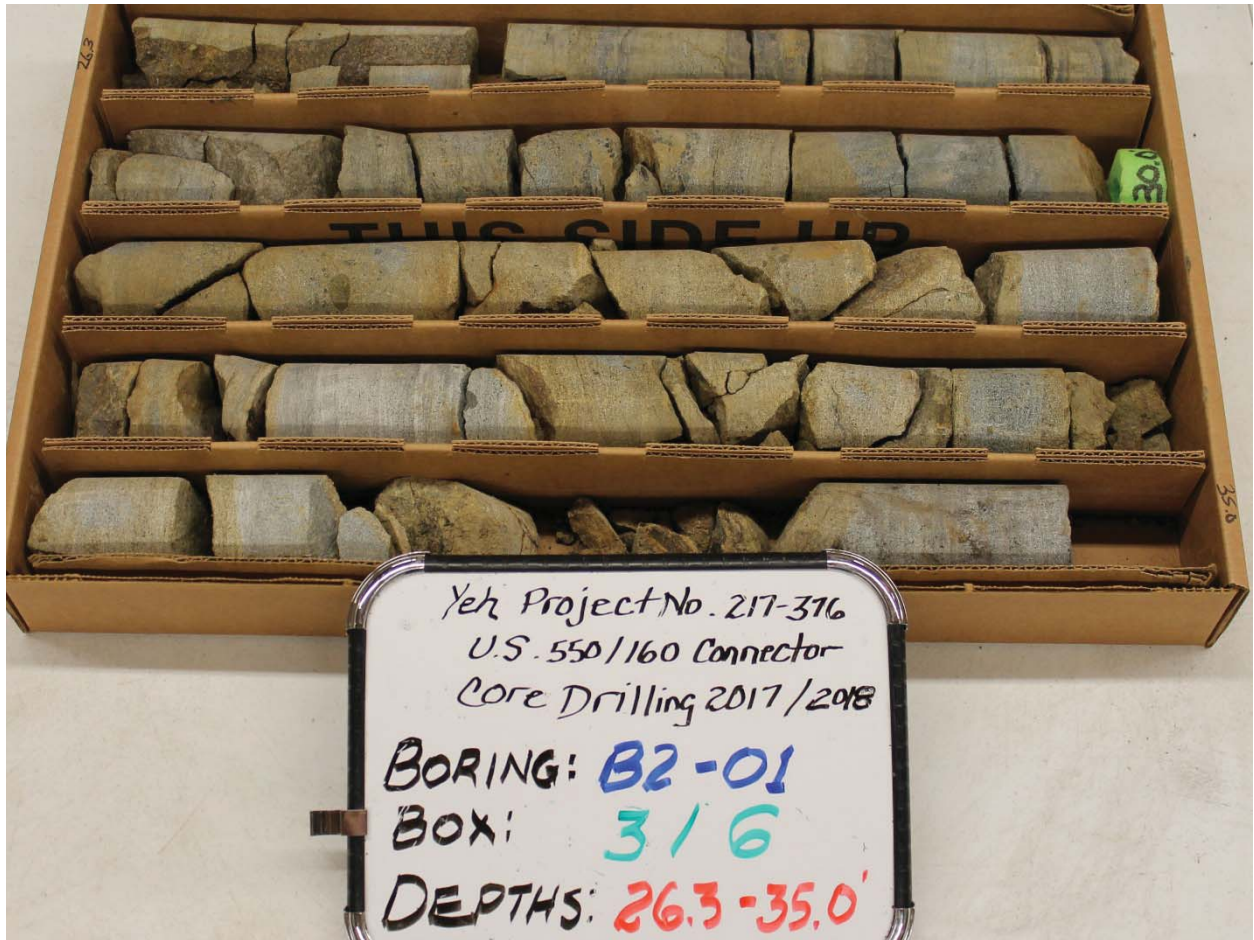 26.3
30.0
THIS SIDE UP
35.0
Yeh Project No. 217-376
U.S. 550/160 Connector
Core Drilling 2017/2018
BORING: B2-01
BOX: 3/6
DEPTHS: 26.3-35.0'